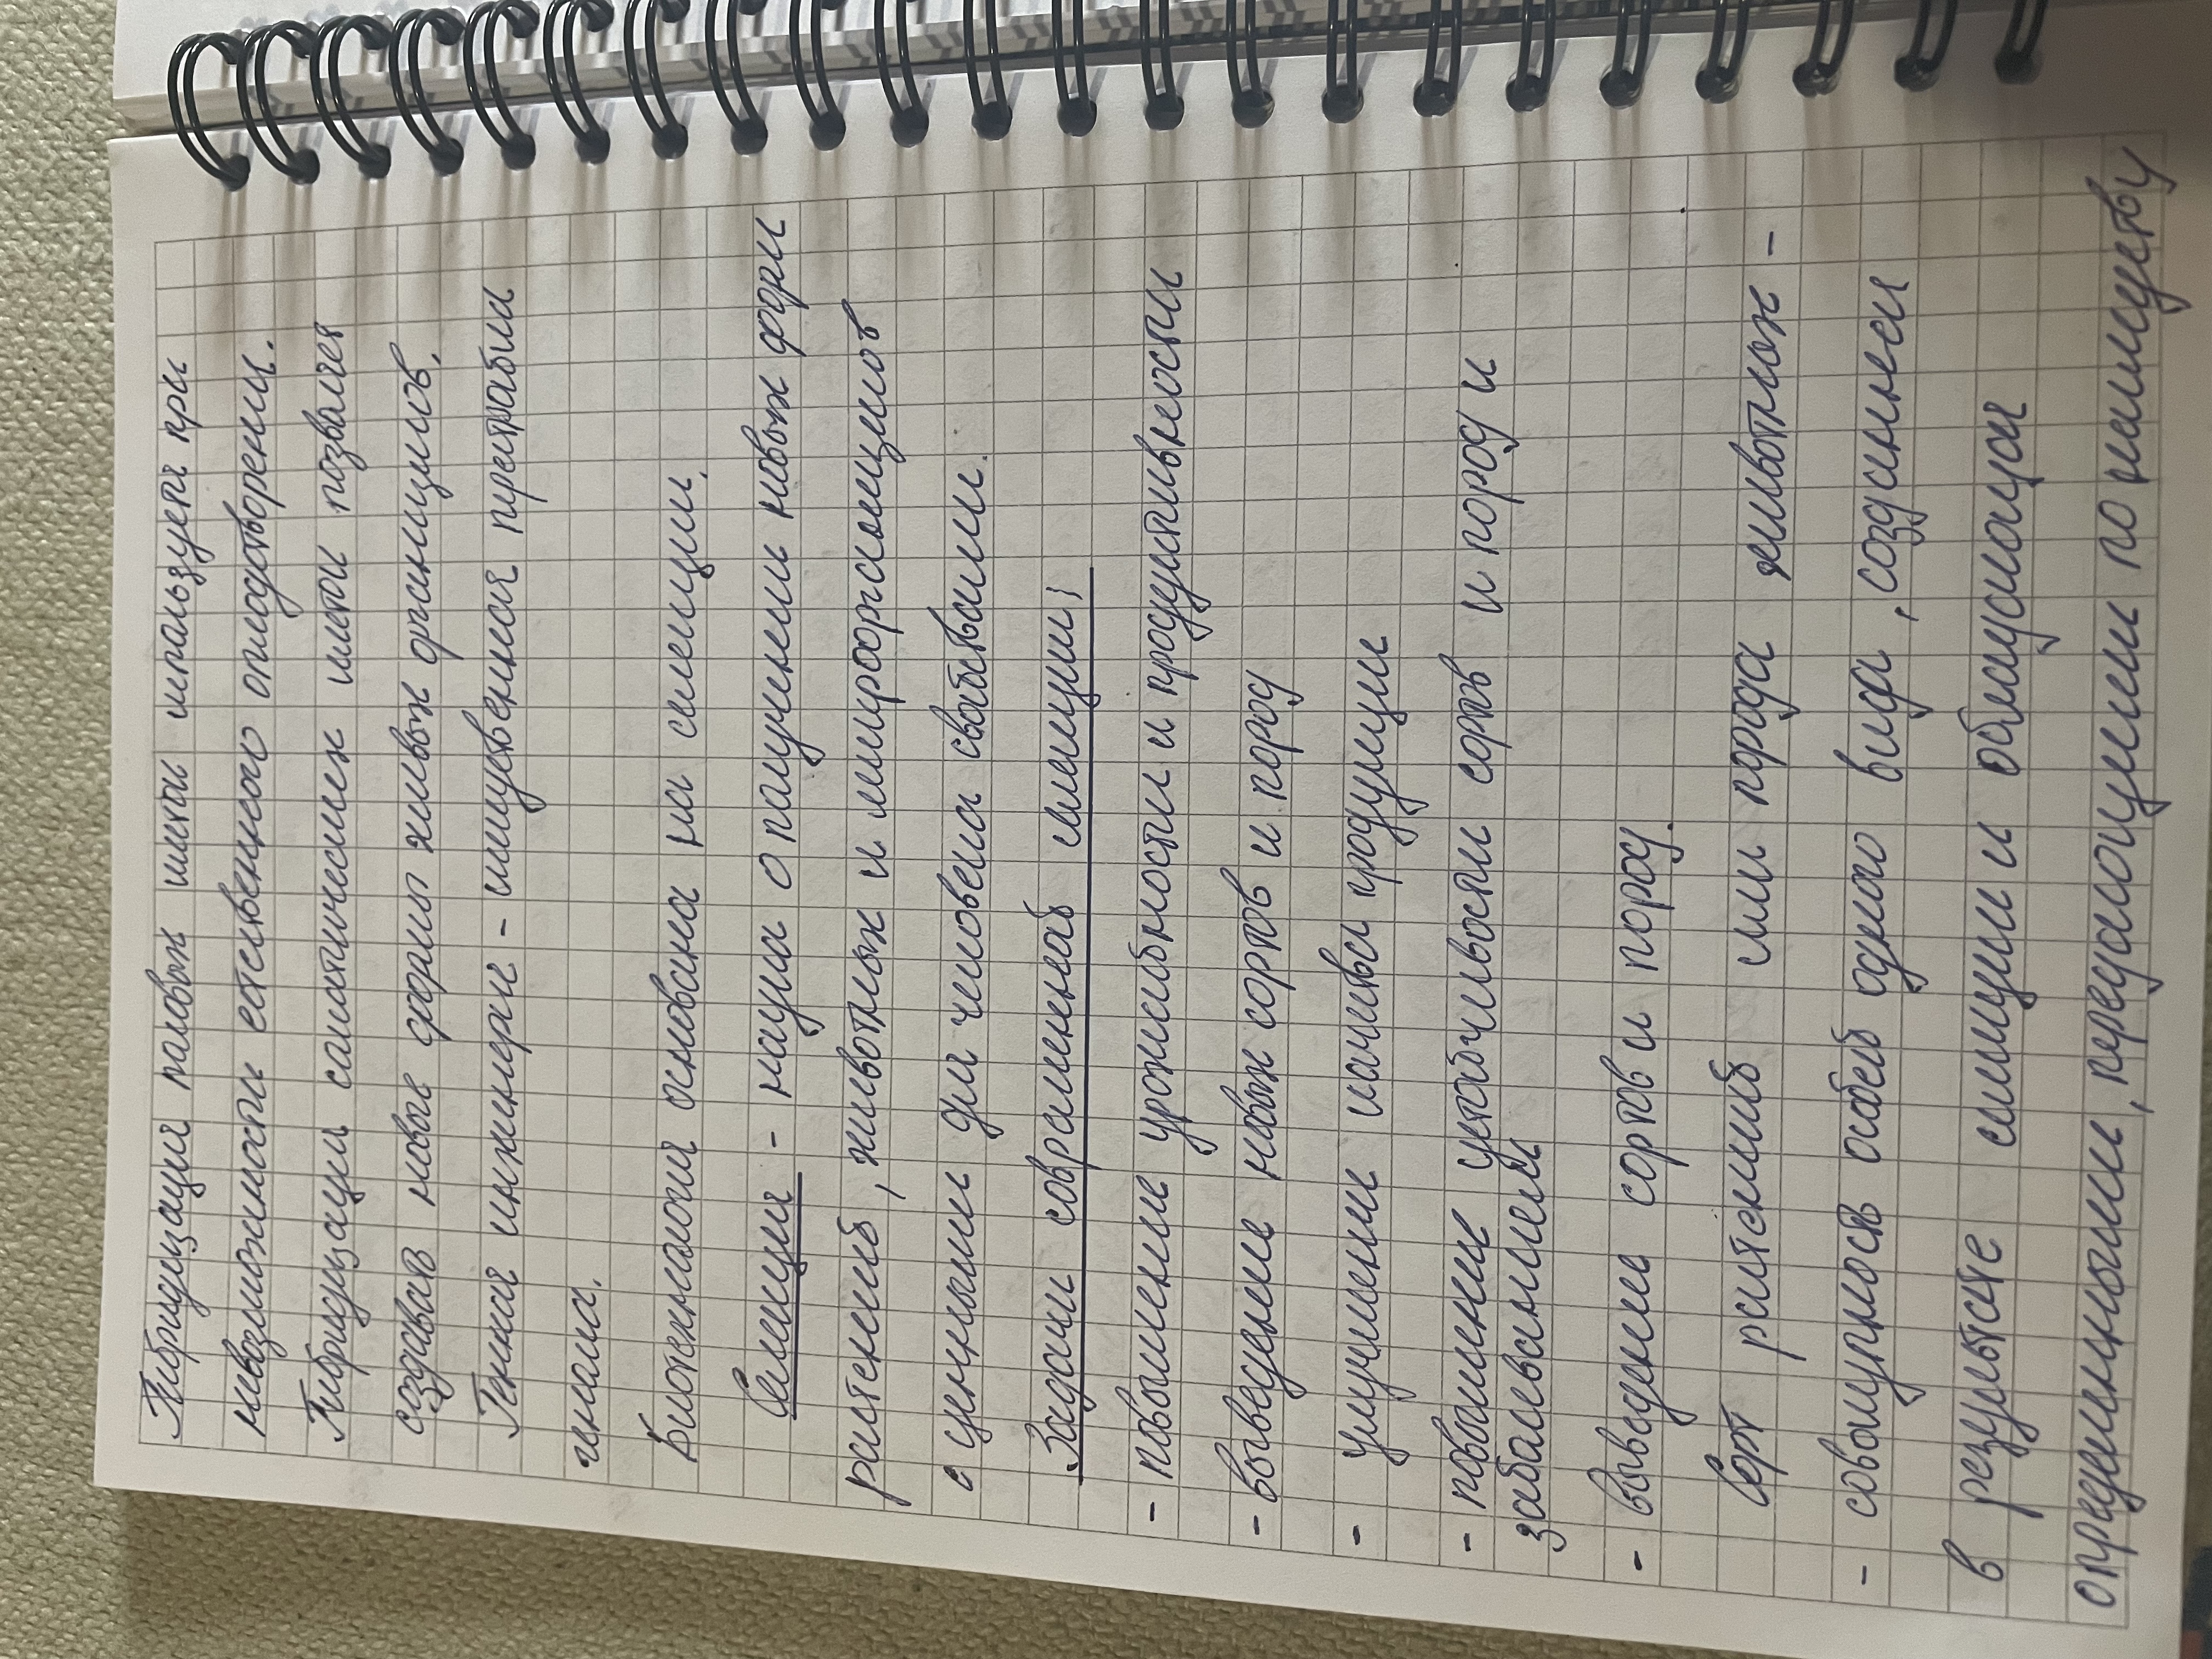 Гибридизация половых клеток используется при
невозможности естественного оплодотворения.
Гибридизация соматических клеток позволяет
создавать новые формы живых организмов.
Генная инженерия - искусственная перестройка
генома.
Биотехнология основана на селекции.
Селекция - наука о получении новых форм
растений, животных и микроорганизмов
с ценными для человека свойствами.
Задачи современной селекции:
- повышение урожайности и продуктивности
- выведение новых сортов и пород
- улучшение качества продукции
- повышение устойчивости сортов и пород к
заболеваниям
- выведение сортов и пород.
Сорт растений или порода животных -
- совокупность особей одного вида, созданная
в результате селекции и обладающая
определенными, передающимися по наследству